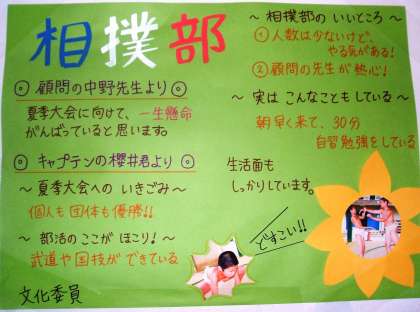 相撲部
◎ 顧問の中野先生より ◎
夏季大会に向けて、一生懸命
がんばっていると思います。
◎ キャプテンの櫻井君より ◎
〜 夏季大会への いきごみ 〜
個人も団体も優勝!!
〜 部活の ここが ほこり! 〜
武道や国技ができている
文化委員
〜 相撲部の いいところ 〜
① 人数は少ないけど、
やる気がある!
② 顧問の先生が熱心!
〜 実は こんなこともしている 〜
朝早く来て、30分
自習勉強をしている
生活面も
しっかりしています。
どすこい!!